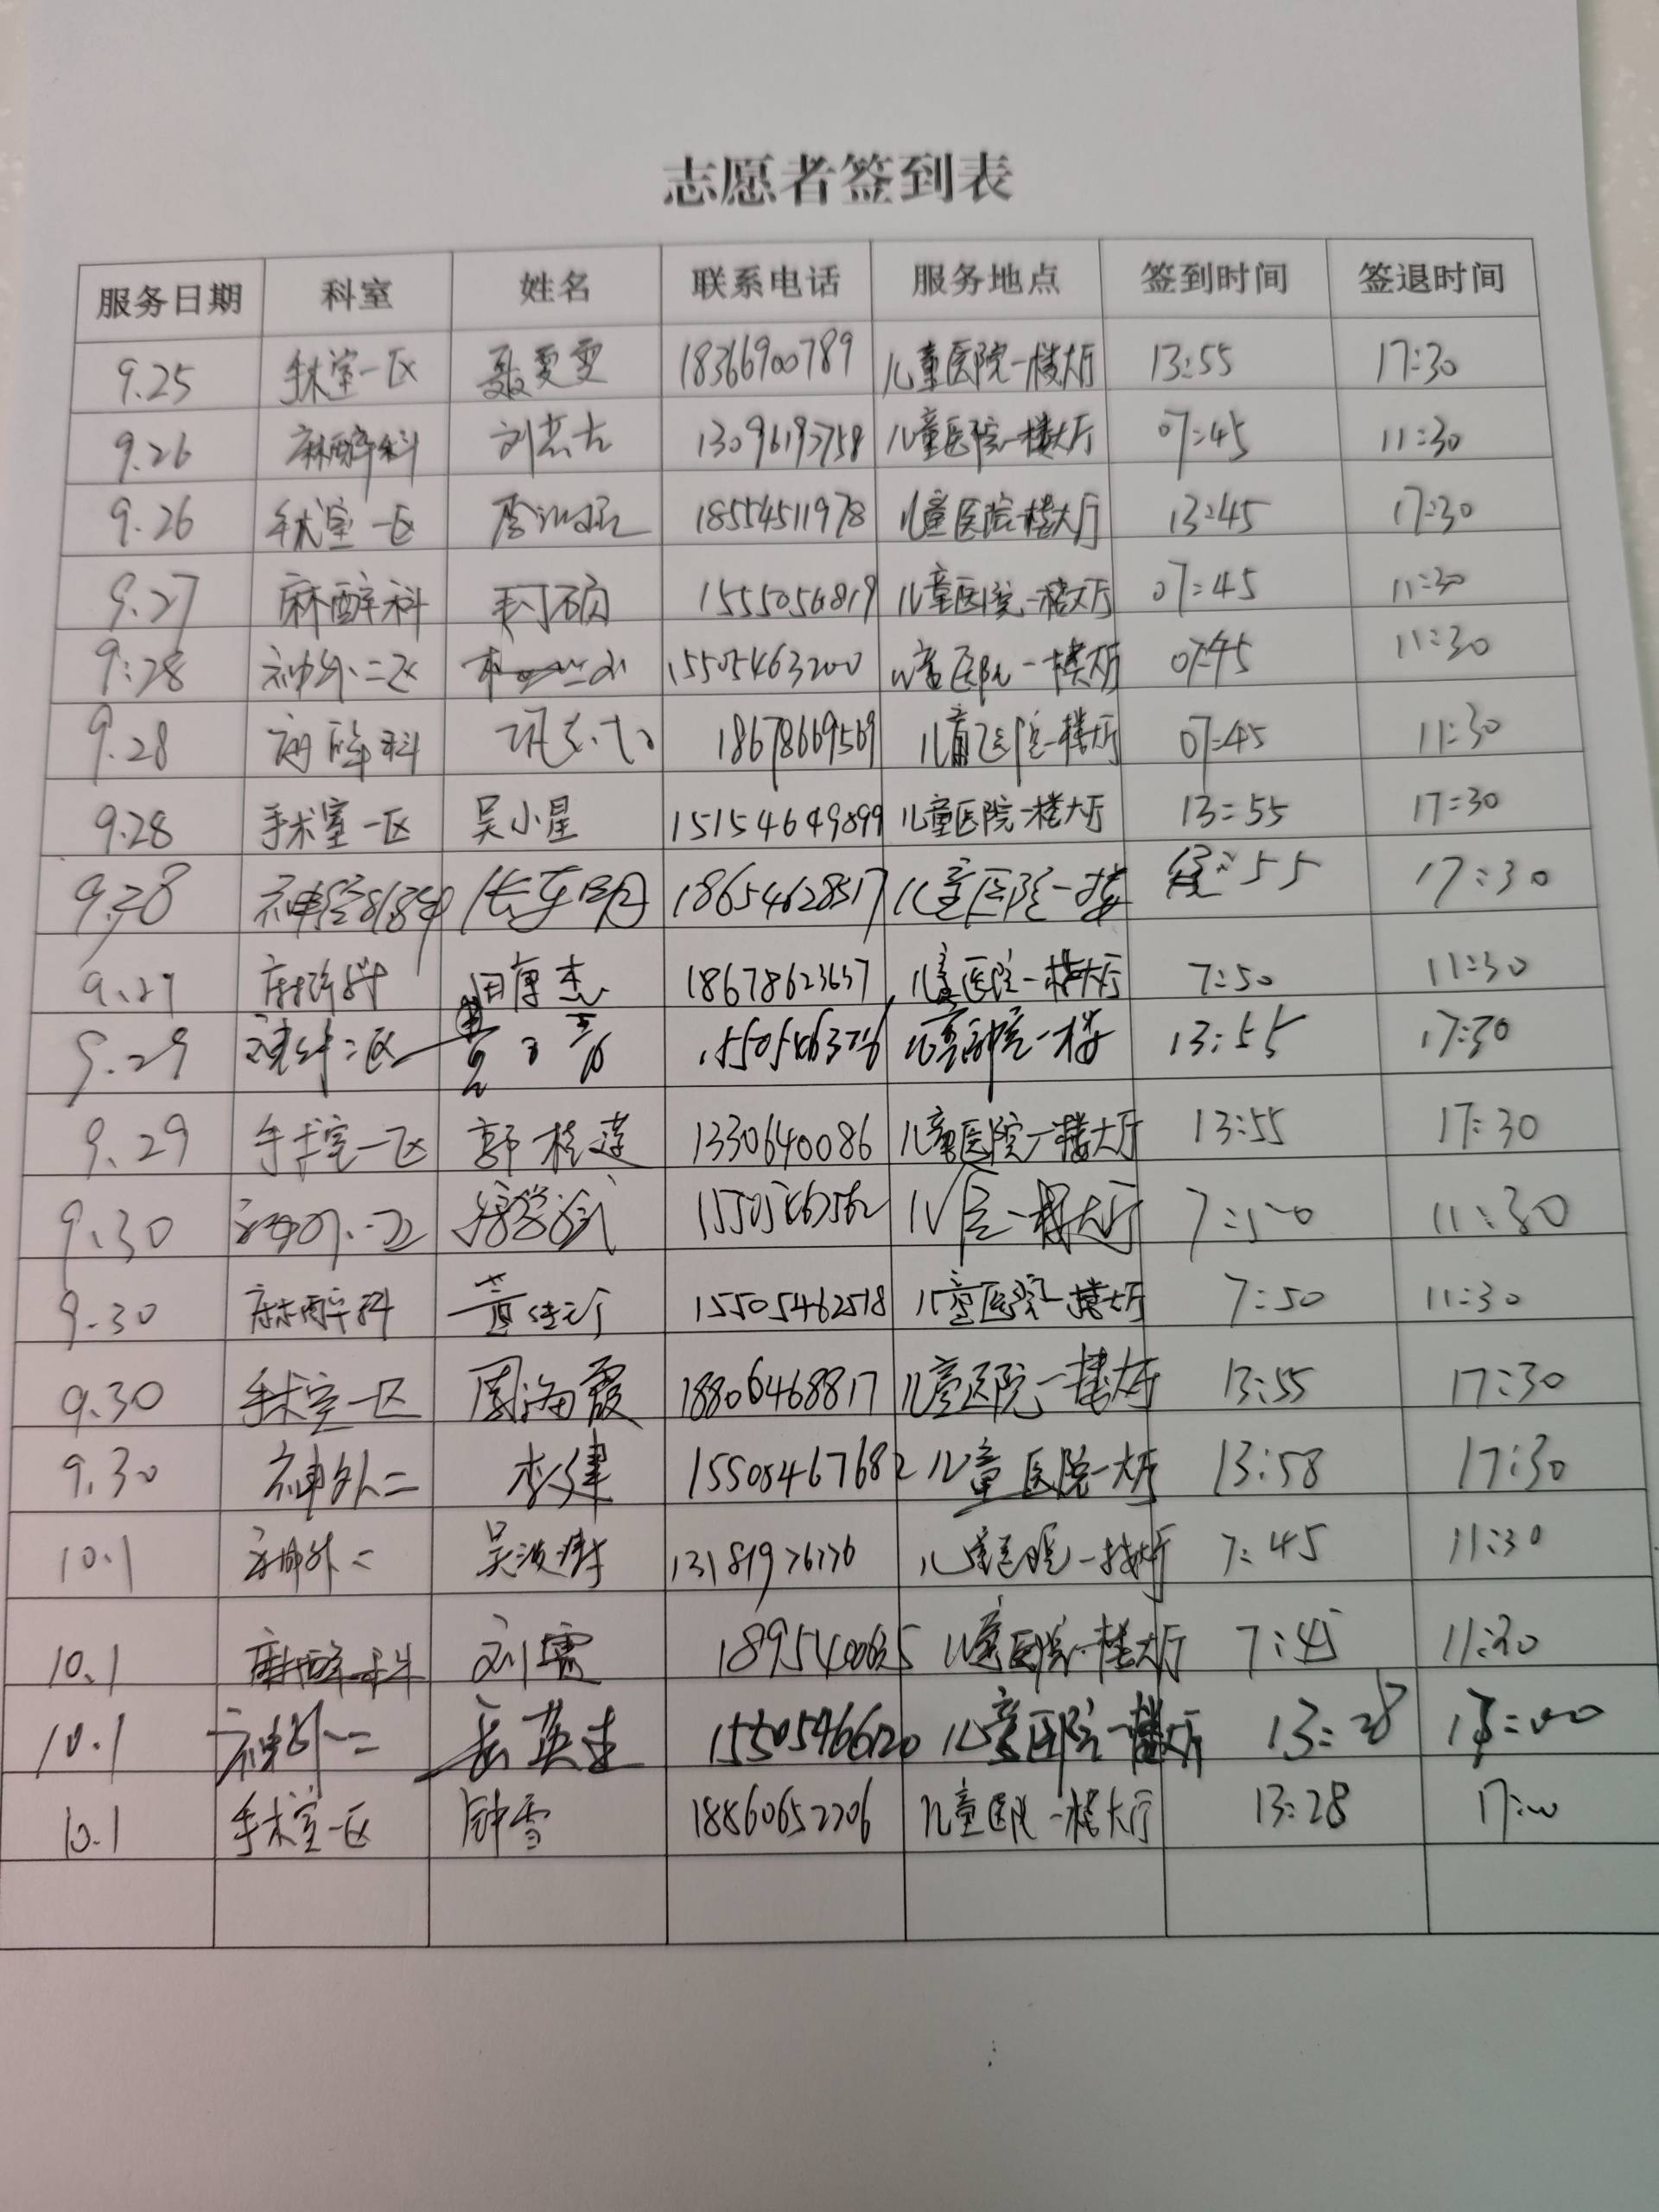 志愿者签到表
服务日期 科室 姓名 联系电话 服务地点 签到时间 签退时间
9.25 手术室一区 聂雯雯 18366900789 儿童医院一楼大厅 13:55 17:30
9.26 麻醉科 刘 儿童医院一楼大厅 07:45 11:30
9.26 手术室一区 18554511978 儿童医院一楼大厅 13:45 17:30
9.27 麻醉科 1555056819 儿童医院一楼大厅 07:45 11:30
9:28 神外二区 15505463200 儿童医院一楼大厅 07:45 11:30
9.28 麻醉科 18678669569 儿童医院一楼大厅 07:45 11:30
9.28 手术室一区 吴小星 15154649899 儿童医院一楼大厅 13:55 17:30
9.28 神经外科 18654628517 儿童医院一楼 :55 17:30
麻醉科 田康杰 18678623637 儿童医院一楼大厅 7:50 11:30
9.29 神外二区 儿童医院一楼 13:55 17:30
9.29 手术室一区 郭桂莲 1330640086 儿童医院一楼大厅 13:55 17:30
9.30 儿医一楼大厅 7:50 11:30
9.30 麻醉科 黄 15505462518 儿童医院一楼大厅 7:50 11:30
9.30 手术室一区 周海霞 18806468817 儿童医院一楼大厅 13:55 17:30
9.30 神外二 李建 15505467682 儿童医院一大厅 13:58 17:30
10.1 神外二 吴波涛 13181976776 儿童医院一楼大厅 7:45 11:30
10.1 麻醉科 刘霞 儿童医院一楼大厅 7:45 11:30
10.1 神外二 英 15505466120 儿童医院一楼大厅 13:28 17:00
10.1 手术室一区 钟雪 18860652206 儿童医院一楼大厅 13:28 17:00